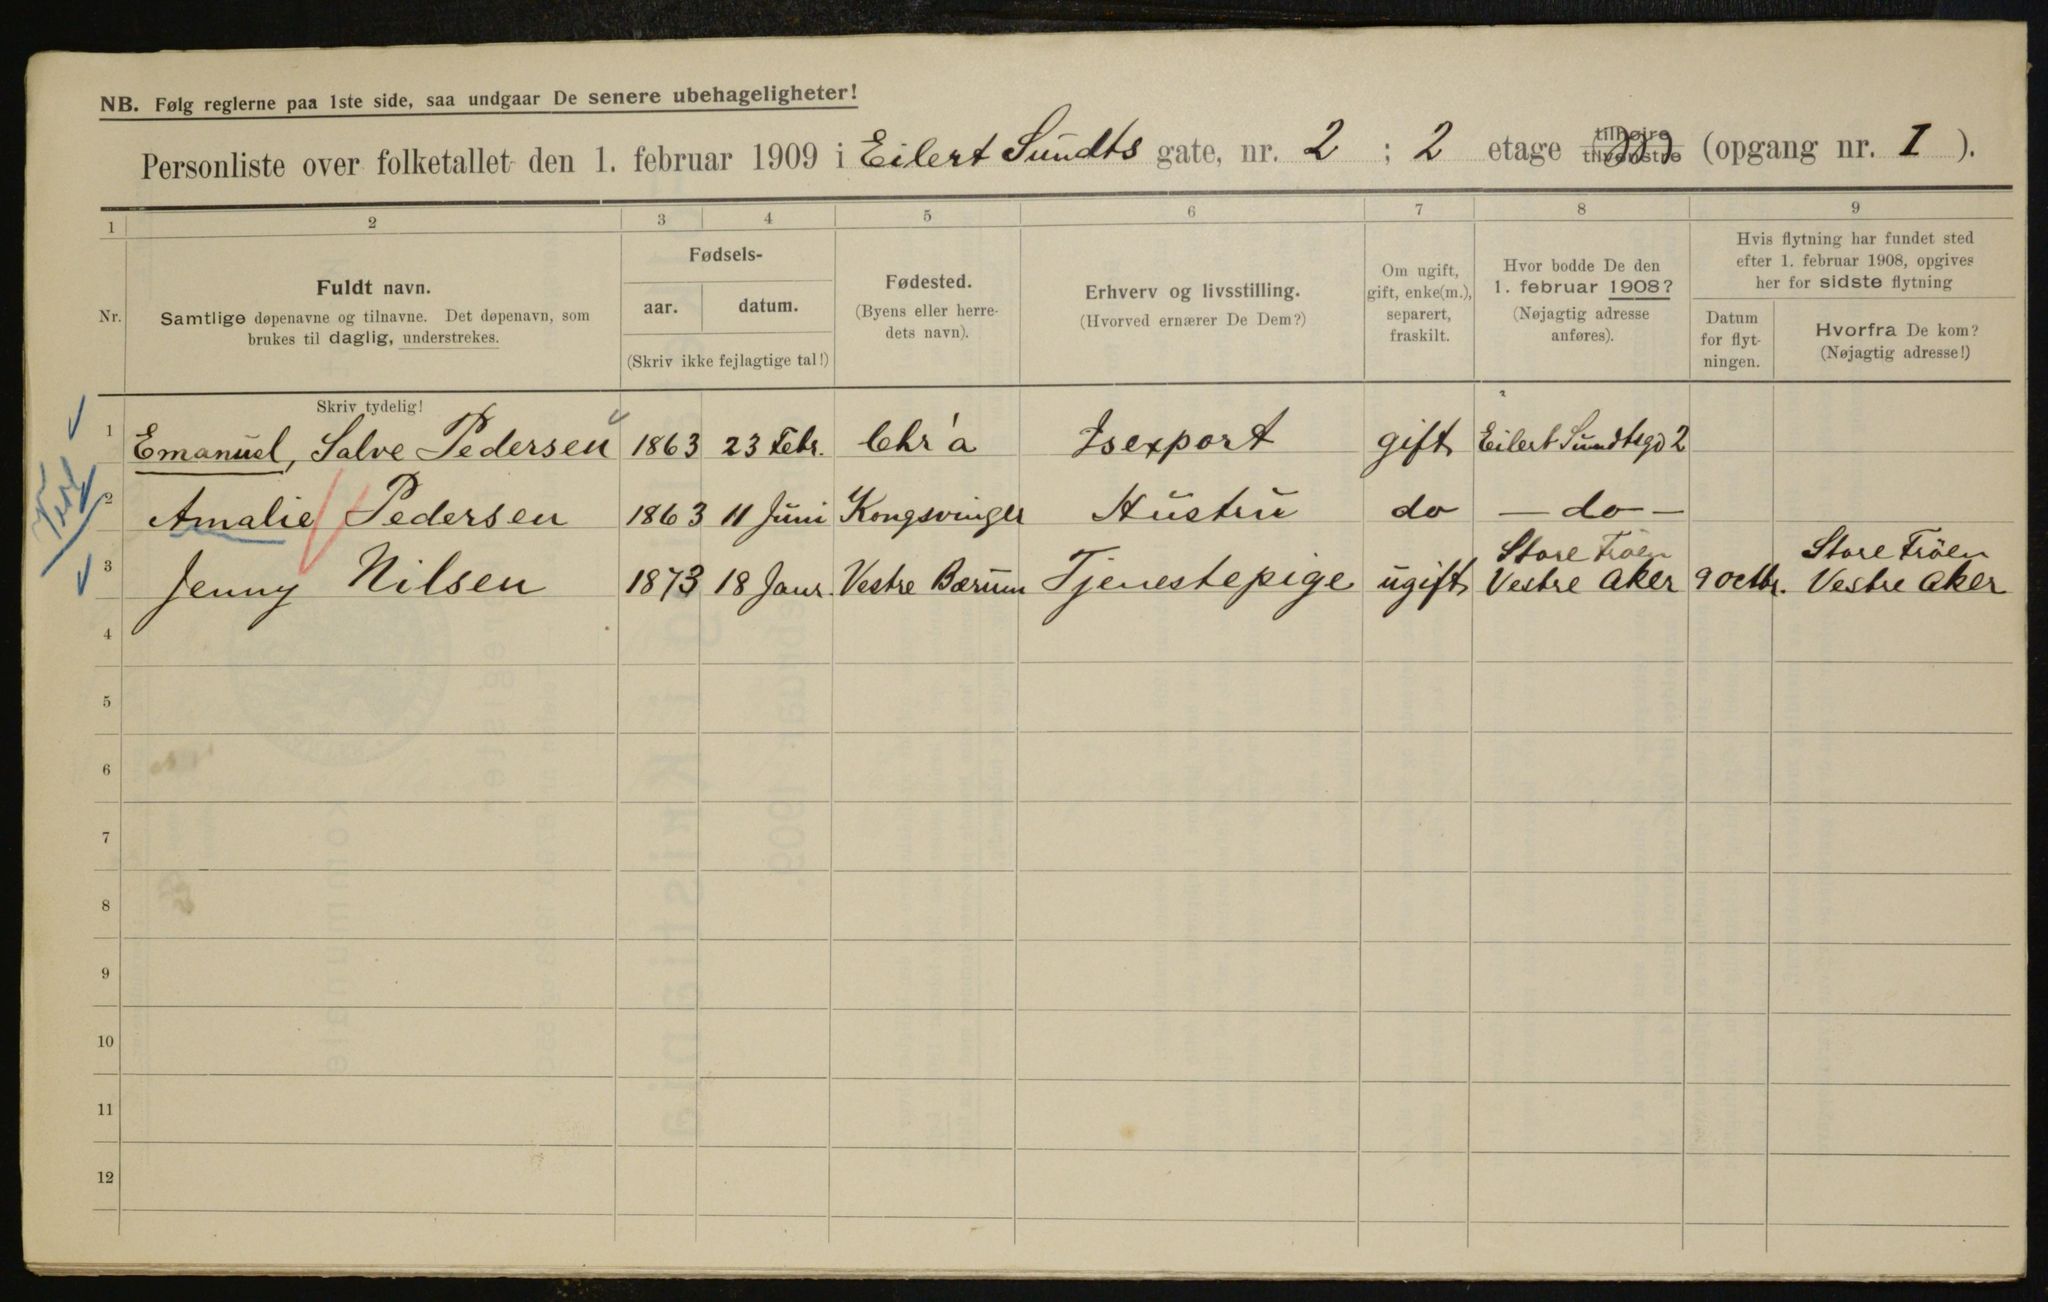 NB. Følg reglerne paa 1ste side, saa undgaar De senere ubehageligheter!
Personliste over folketallet den 1. februar 1909 i Eilert Sundts gate, nr. 2 ; 2 etage (tilhøire tilvenstre) (opgang nr. I ).
1 2 3 4 5 6 7 8 9
Nr.
Fuldt navn.
Samtlige døpenavne og tilnavne. Det døpenavn, som
brukes til daglig, understrekes.
Fødsels-
aar. datum.
(Skriv ikke fejlagtige tal!)
Fødested.
(Byens eller herre-
dets navn).
Erhverv og livsstilling.
(Hvorved ernærer De Dem?)
Om ugift,
gift, enke(m.),
separert,
fraskilt.
Hvor bodde De den
1. februar 1908?
(Nøjagtig adresse
anføres).
Hvis flytning har fundet sted
efter 1. februar 1908, opgives
her for sidste flytning
Datum
for flyt-
ningen.
Hvorfra De kom?
(Nøjagtig adresse!)
Skriv tydelig!
1 Emanuel, Salve Pedersen 1863 23 Febr. Chr'a Isexport gift Eilert Sundtsgd 2
2 Amalie Pedersen 1863 11 Juni Kongsvinger Hustru do — do —
3 Jenny Nilsen 1873 18 Janr. Vestre Bærum Tjenestepige ugift Store Fröen Vestre Aker 9 Octbr. Store Fröen Vestre Aker
4
5
6
7
8
9
10
11
12